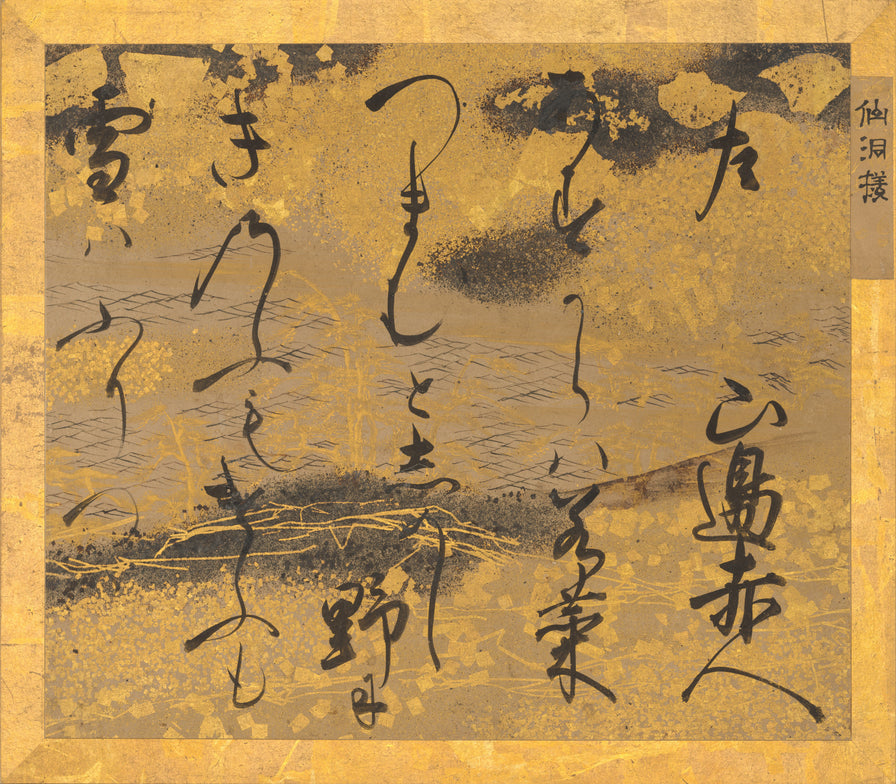 仙洞様
左
山邊赤人
あすからハ若菜
つまむと志めし野に
きのふもけふも
雪ハふりつゝ